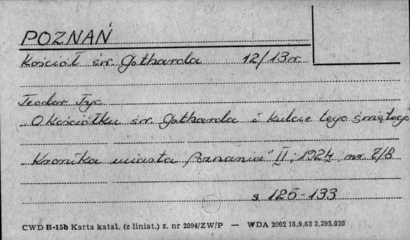 POZNAŃ
Kościół św. Gotharda 12/13 w.
Teodor Tyc
O kościółku św. Gotharda i kulcie tego świętego
"Kronika miasta Poznania" II: 1924 nr 7/8
s 126-133
CWD B-15b Karta katal. (z liniat.) z. nr 2094/ZW/P — WDA 2002 16.9.63 2.395.020